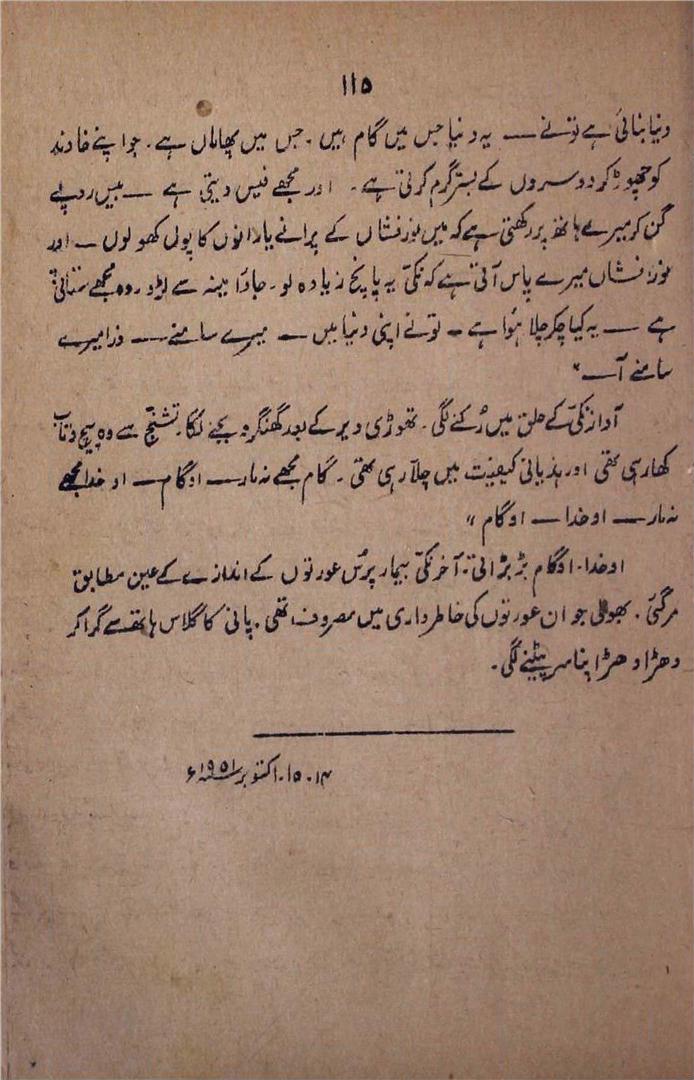 ۱۱۵
دنیا بنائی ہے تونے — یہ دنیا جس میں گام ہیں۔ جس میں پھاماں ہے۔ جو اپنے خاوند
کو چھوڑ کر دوسروں کے بستر گرم کرتی ہے۔ اور مجھے فیس دیتی ہے — بیس روپے
گن کر میرے ہاتھ پر رکھتی ہے کہ میں نورفشاں کے پرانے یارانوں کا پول کھولوں — اور
نورفشاں میرے پاس آتی ہے کہ نکّی یہ پانچ زیادہ لو۔ جاؤ امینہ سے لڑو۔ وہ مجھے ستاتی
ہے — یہ کیا چکر چلا ہوا ہے — تونے اپنی دنیا میں — میرے سامنے — ذرا میرے
سامنے آ — "
آواز نکّی کے حلق میں رُکنے لگی۔ تھوڑی دیر کے بعد گھنگرو بجنے لگا۔ تشنج سے وہ پیچ و تاب
کھا رہی تھی اور ہذیانی کیفیّت میں چلّا رہی تھی۔ گام مجھے نہ مار — او گام — او خدا مجھے
نہ مار — او خدا — او گام "
او خدا۔ او گام بڑبڑاتی۔ آخر نکّی بیمار پرس عورتوں کے اندازے کے عین مطابق
مر گئی۔ بھولی جو ان عورتوں کی خاطرداری میں مصروف تھی۔ پانی کا گلاس ہاتھ سے گرا کر
دھڑا دھڑ اپنا سر پیٹنے لگی۔
۱۴۔۱۵۔ اکتوبر ۱۹۵۱ء